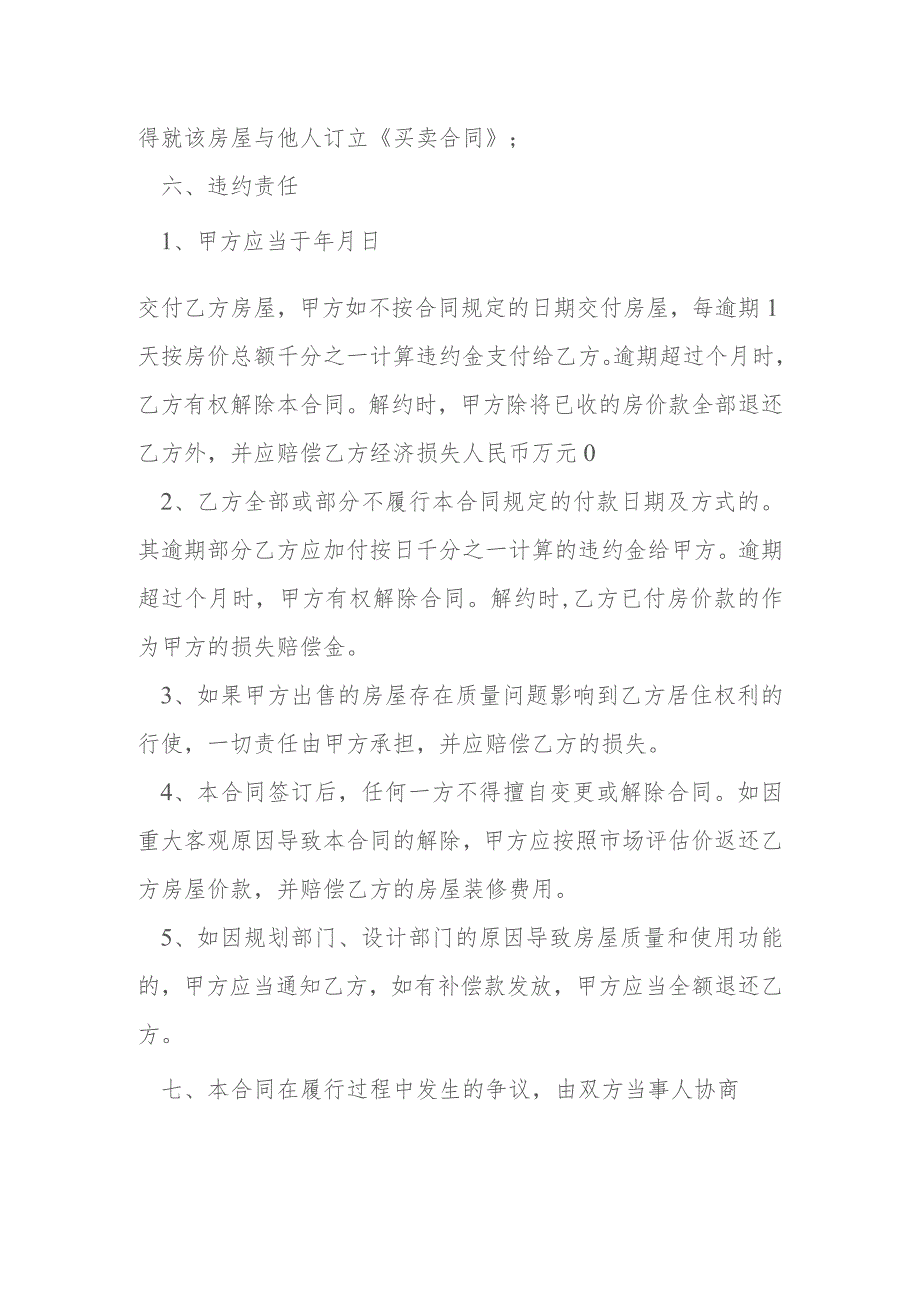 得就该房屋与他人订立《买卖合同》；
六、违约责任
1、甲方应当于年月日
交付乙方房屋，甲方如不按合同规定的日期交付房屋，每逾期1
天按房价总额千分之一计算违约金支付给乙方。逾期超过个月时，
乙方有权解除本合同。解约时，甲方除将已收的房价款全部退还
乙方外，并应赔偿乙方经济损失人民币万元0
2、乙方全部或部分不履行本合同规定的付款日期及方式的。
其逾期部分乙方应加付按日千分之一计算的违约金给甲方。逾期
超过个月时，甲方有权解除合同。解约时,乙方已付房价款的作
为甲方的损失赔偿金。
3、如果甲方出售的房屋存在质量问题影响到乙方居住权利的
行使，一切责任由甲方承担，并应赔偿乙方的损失。
4、本合同签订后，任何一方不得擅自变更或解除合同。如因
重大客观原因导致本合同的解除，甲方应按照市场评估价返还乙
方房屋价款，并赔偿乙方的房屋装修费用。
5、如因规划部门、设计部门的原因导致房屋质量和使用功能
的，甲方应当通知乙方，如有补偿款发放，甲方应当全额退还乙
方。
七、本合同在履行过程中发生的争议，由双方当事人协商